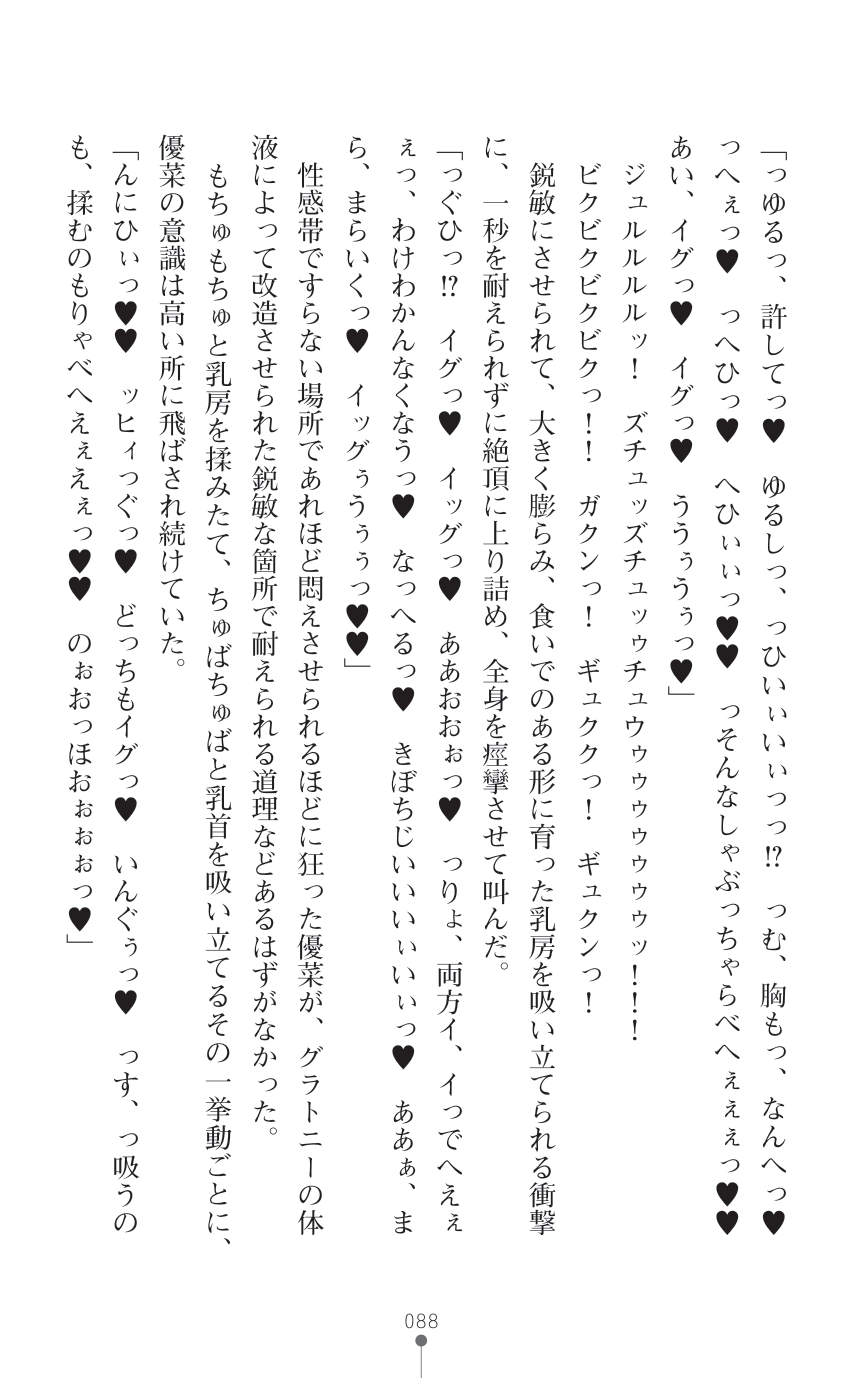 「っゆるっ、許してっ♥　ゆるしっ、っひいぃいぃっっ⁉　っむ、胸もっ、なんへっ♥
っへぇっ♥　っへひっ♥　へひぃぃっ♥♥　っそんなしゃぶっちゃらべへぇぇぇっ♥♥
あい、イグっ♥　イグっ♥　うぅうぅっ♥」
　ジュルルルルッ！　ズチュッズチュッゥチュウゥゥウゥウゥウゥッ！！！
　ビクビクビクビクっ！！　ガクンっ！　ギュククっ！　ギュクンっ！
　鋭敏にさせられて、大きく膨らみ、食いでのある形に育った乳房を吸い立てられる衝撃
に、一秒を耐えられずに絶頂に上り詰め、全身を痙攣させて叫んだ。
「っぐひっ⁉　イグっ♥　イッグっ♥　ああおおぉっ♥　っりょ、両方イ、イっでへえぇ
ぇっ、わけわかんなくなうっ♥　なっへるっ♥　きぼちじいいいぃいぃっ♥　ああぁ、ま
ら、まらいくっ♥　イッグぅうぅぅっ♥♥」
　性感帯ですらない場所であれほど悶えさせられるほどに狂った優菜が、グラトニーの体
液によって改造させられた鋭敏な箇所で耐えられる道理などあるはずがなかった。
　もちゅもちゅと乳房を揉みたて、ちゅばちゅばと乳首を吸い立てるその一挙動ごとに、
優菜の意識は高い所に飛ばされ続けていた。
「んにひぃっ♥♥　ッヒィっぐっ♥　どっちもイグっ♥　いんぐぅっ♥　っす、っ吸うの
も、揉むのもりゃべへえぇえぇっ♥♥　のぉおっほおぉぉぉっ♥」
088